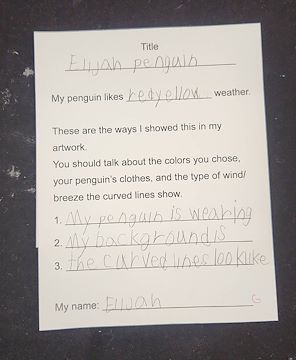 Title
Elijah penguin
My penguin likes redyellow weather.
These are the ways I showed this in my
artwork.
You should talk about the colors you chose,
your penguin's clothes, and the type of wind/
breeze the curved lines show.
1. My penguin is wearing
2. My background is
3. the curved lines look like
My name: Elijah
G